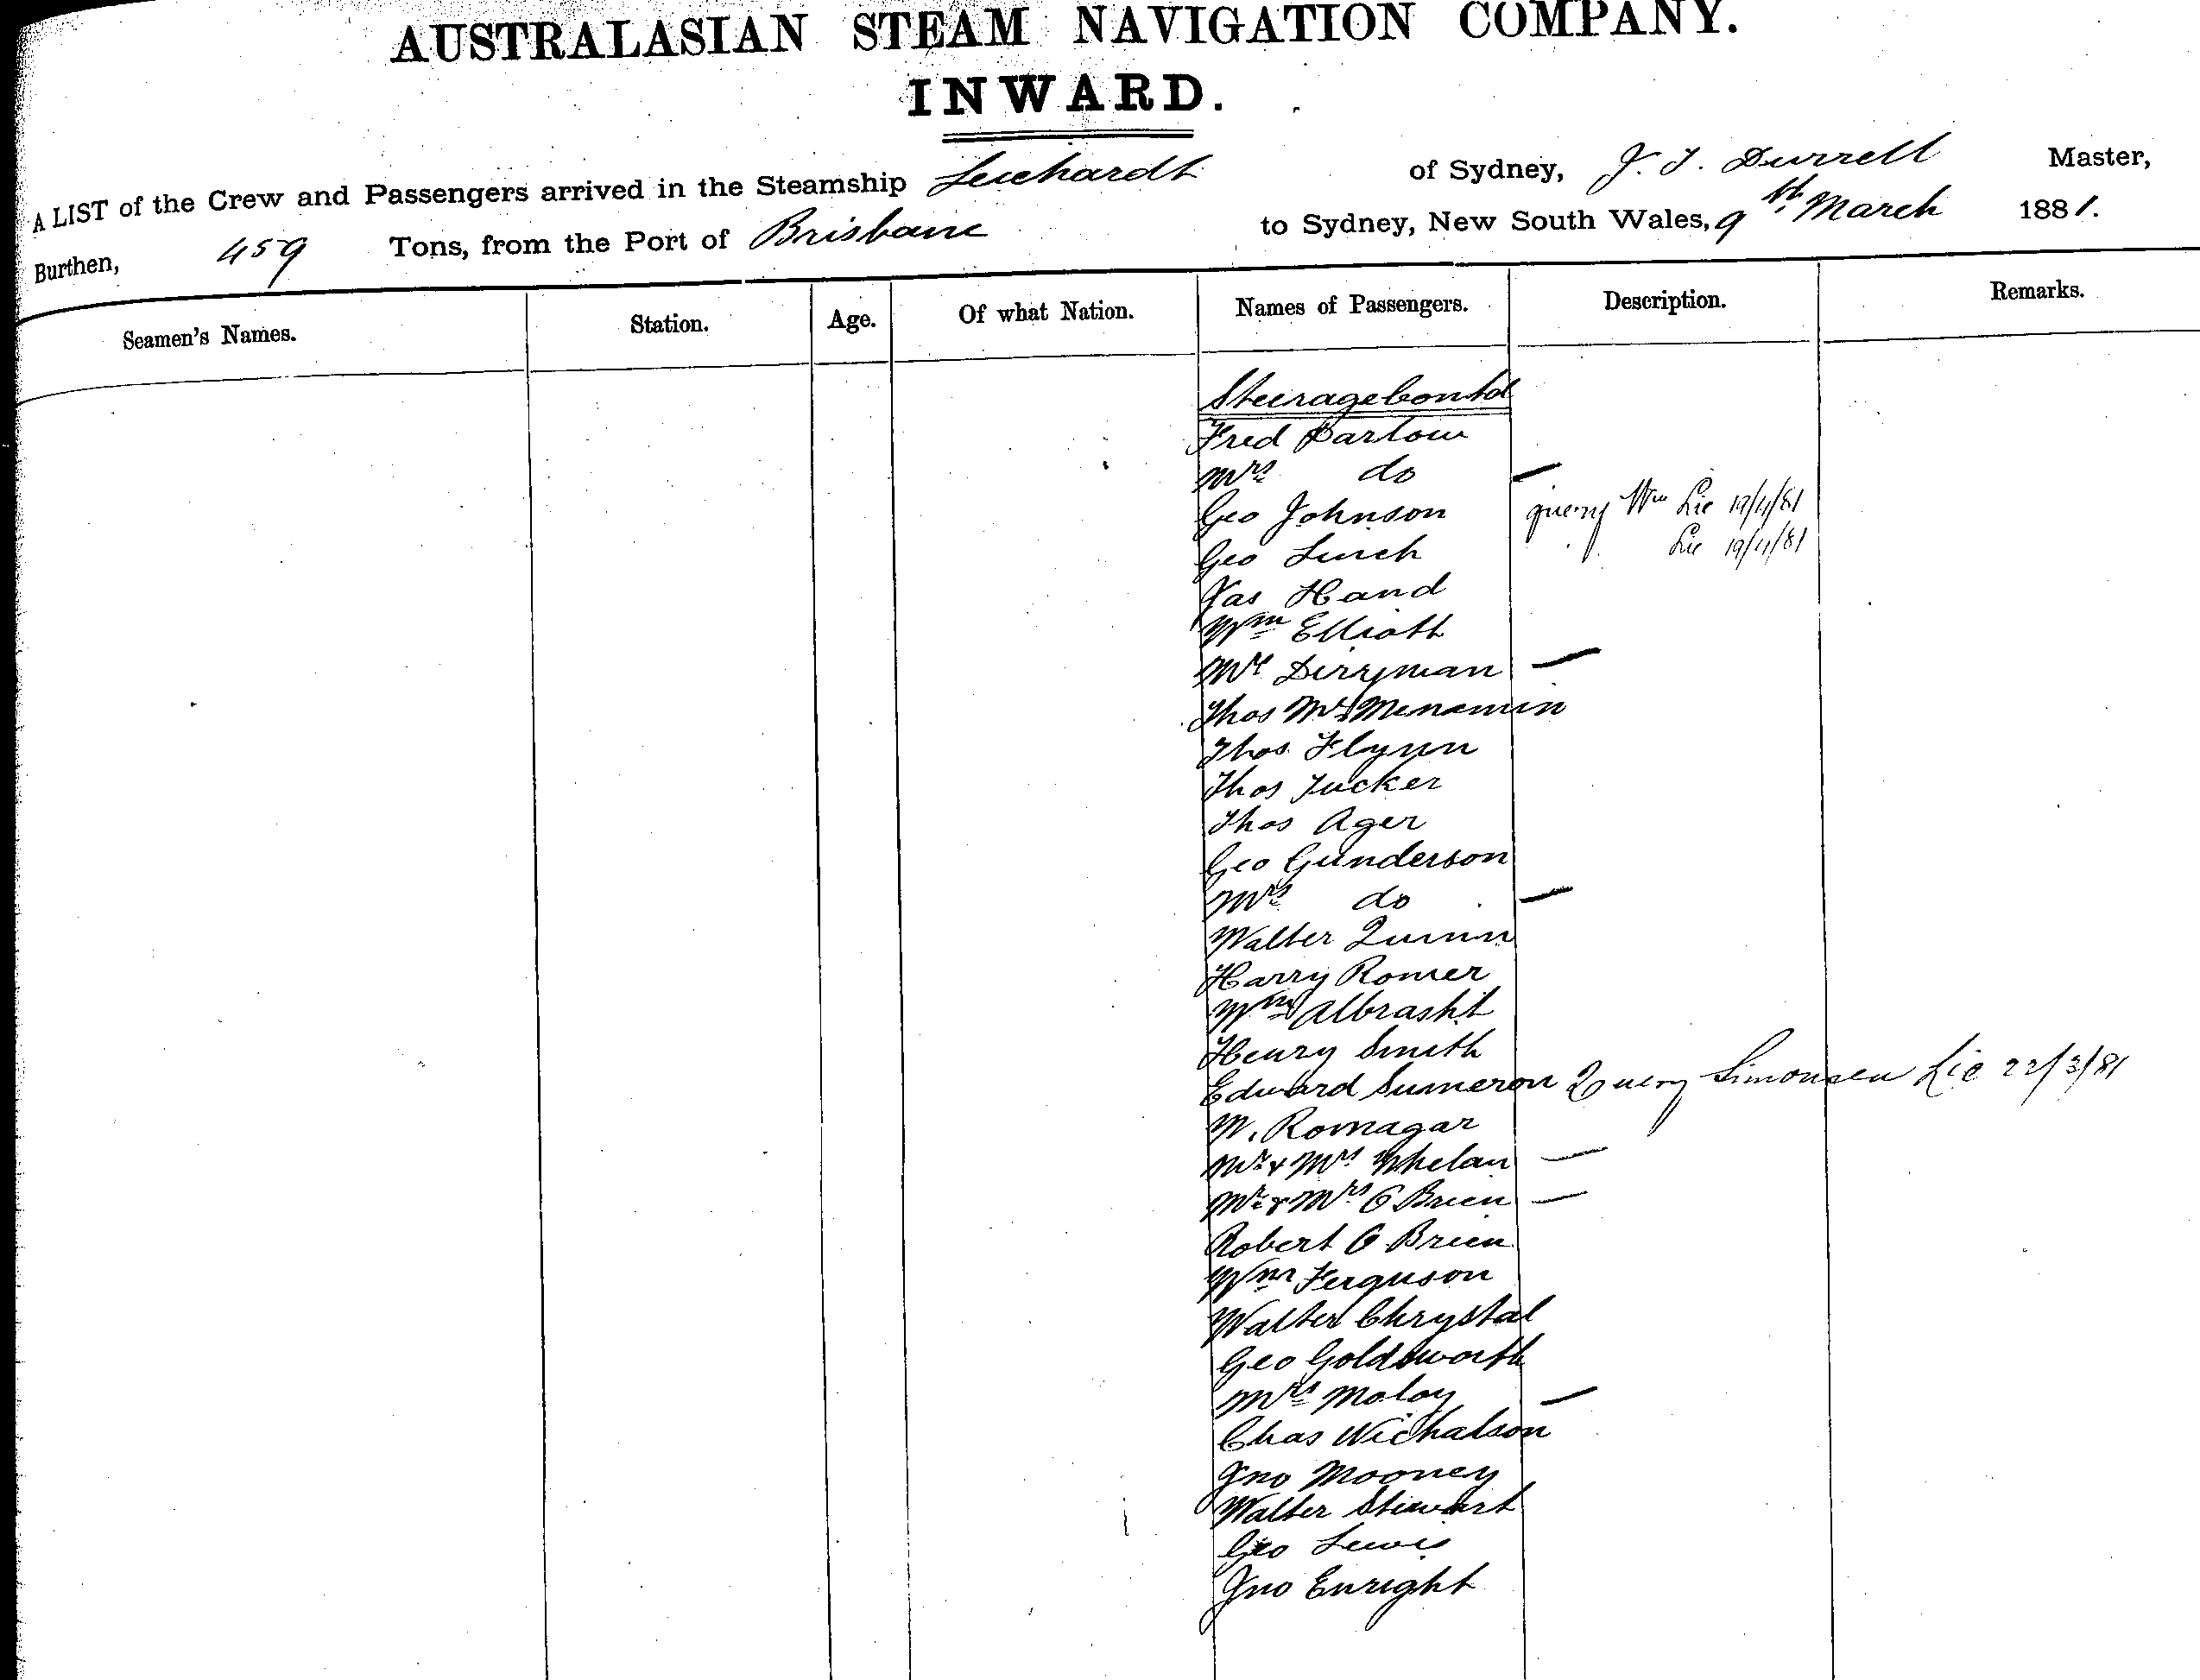 AUSTRALASIAN STEAM NAVIGATION COMPANY.
INWARD.
A LIST of the Crew and Passengers arrived in the Steamship Leichardt of Sydney, J. T. Durrell Master,
Burthen, 459 Tons, from the Port of Brisbane to Sydney, New South Wales, 9th March 1881.
Seamen's Names. Station. Age. Of what Nation. Names of Passengers. Description. Remarks.
Steerage Contd
Fred Bartow
Mrs do —
Geo Johnson query Wm Lic 19/4/81
Geo Lurch Lic 19/4/81
Jas Hand
Wm Elliott
Mrs Derryman —
Thos McMenamin
Thos Flynn
Thos Tucker
Thos Ager
Geo Gunderson
Mrs do —
Walter Quinn
Harry Romer
Wm Albrasht
Henry Smith
Edward Sumeron Query Simonsen Lic 22/3/81
M. Romagar
Mr & Mrs Whelan —
Mr & Mrs O Brien —
Robert O Brien
Wm Ferguson
Walter Chrystal
Geo Goldsworth
Mrs Moloy —
Chas Nichalson
Jno Mooney
Walter Stewart
Geo Lewis
Jno Enright